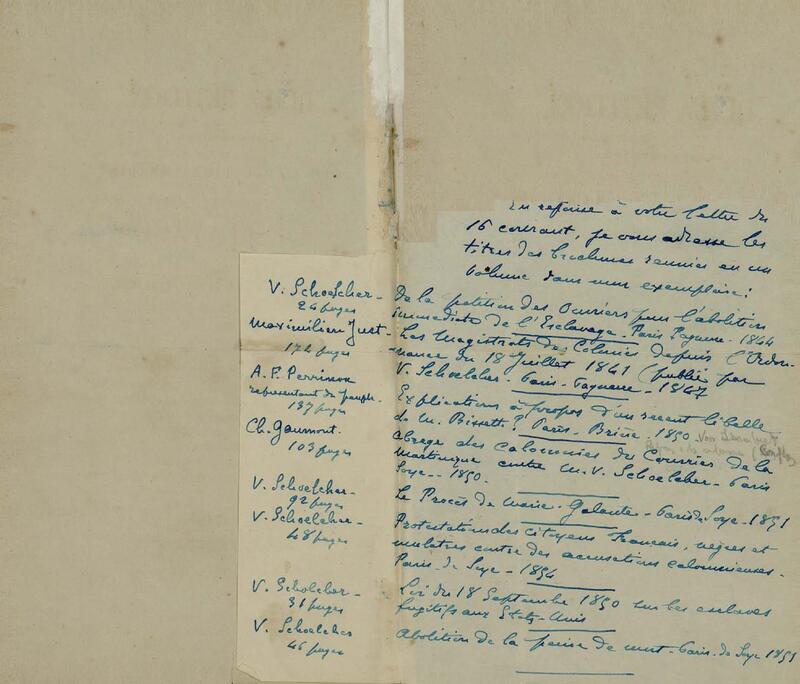 En reponse à votre lettre du
16 courant, je vous adresse les
titres des brochures reunies en un
volume dans mon exemplaire:
V. Schoelcher - De la petition des Ouvriers pour l'abolition
24 pages immediate de l'Esclavage - Paris Pagnerre - 1844
Maximilien Just - Les Magistrats des Colonies depuis l'Ordon-
172 pages nance du 18 Juillet 1841 (publié par
V. Schoelcher - Paris - Pagnerre - 1847
A. F. Perrinon Explications à propos d'un recent libelle
representant du peuple - de M. Bissette? Paris - Brière - 1850
137 pages
Ch. Gaumont. Abrege des calomnies du Courrier de la
103 pages Martinique contre M. V. Schoelcher - Paris
Soye - 1850.
V. Schoelcher - Le Procès de Marie-Galante - Paris de Soye - 1851
92 pages
V. Schoelcher - Protestation des citoyens Français, nègres et
48 pages mulatres contre des accusations calomnieuses -
Paris - de Soye - 1851
V. Schoelcher - Loi du 18 Septembre 1850 sur les esclaves
31 pages fugitifs aux Etats-Unis
V. Schoelcher Abolition de la peine de mort - Paris - de Soye 1851
46 pages